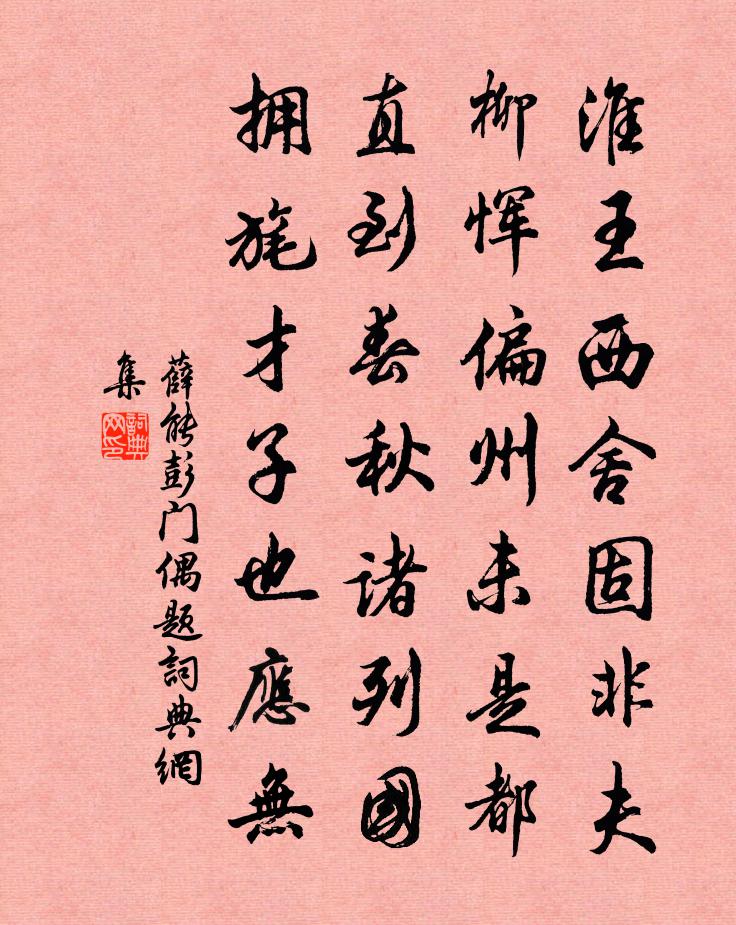 淮王西舍固非夫
柳恽偏州未是都
直到春秋諸列國
拥旄才子也應無
薛能彭门偶题詞典網
集
詞典
网印